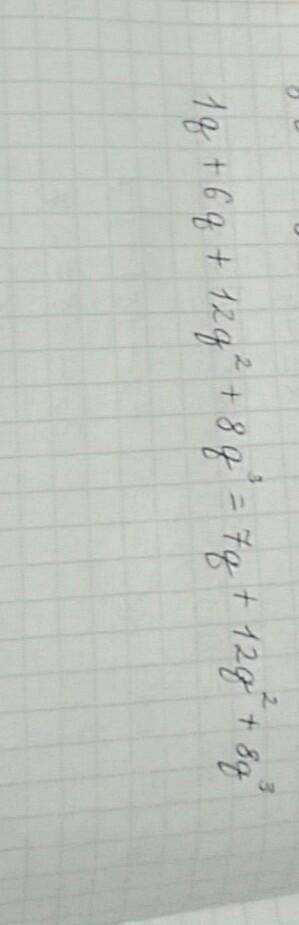 1g + 6g + 12g² + 8g³ = 7g + 12g² + 8g³